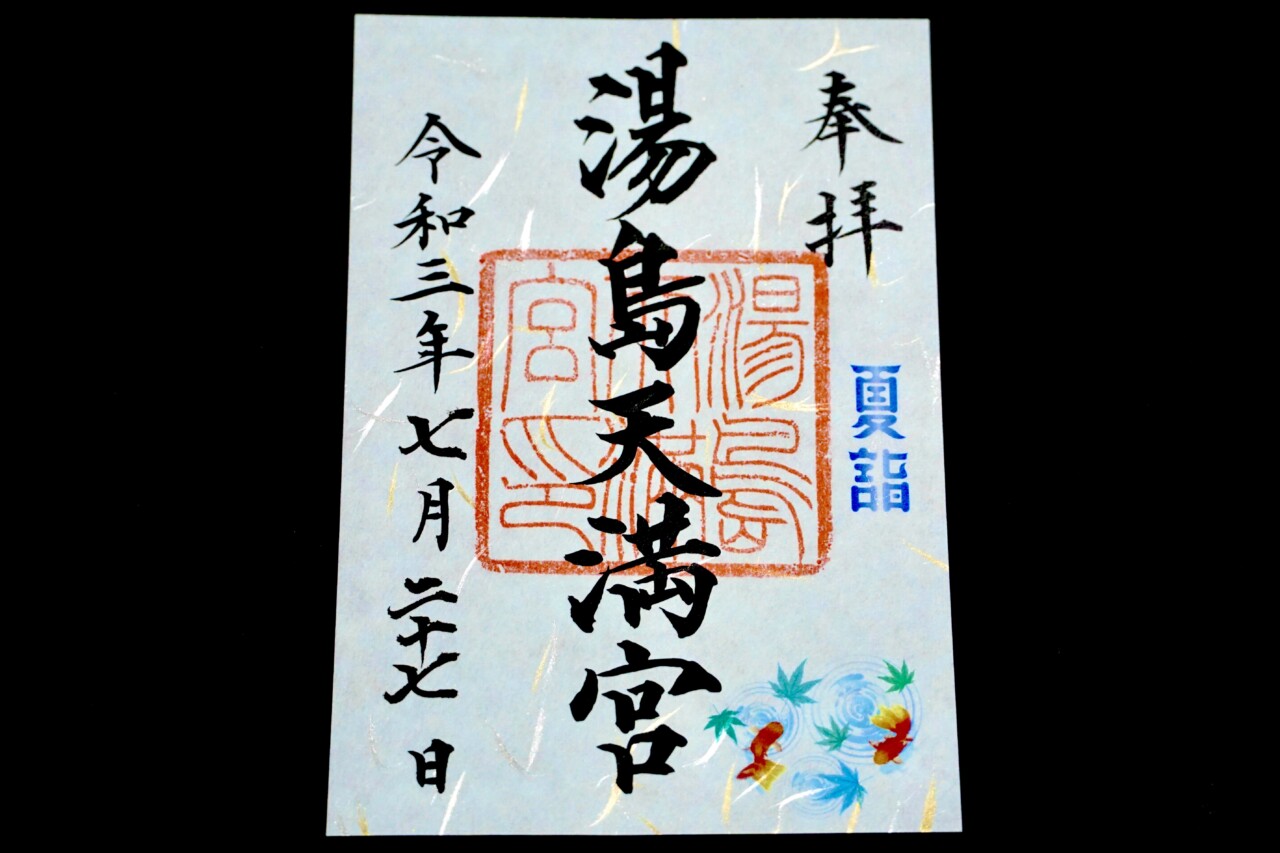 奉拝
夏詣
湯島天満宮
湯島
天満
宮印
令和三年七月二十七日